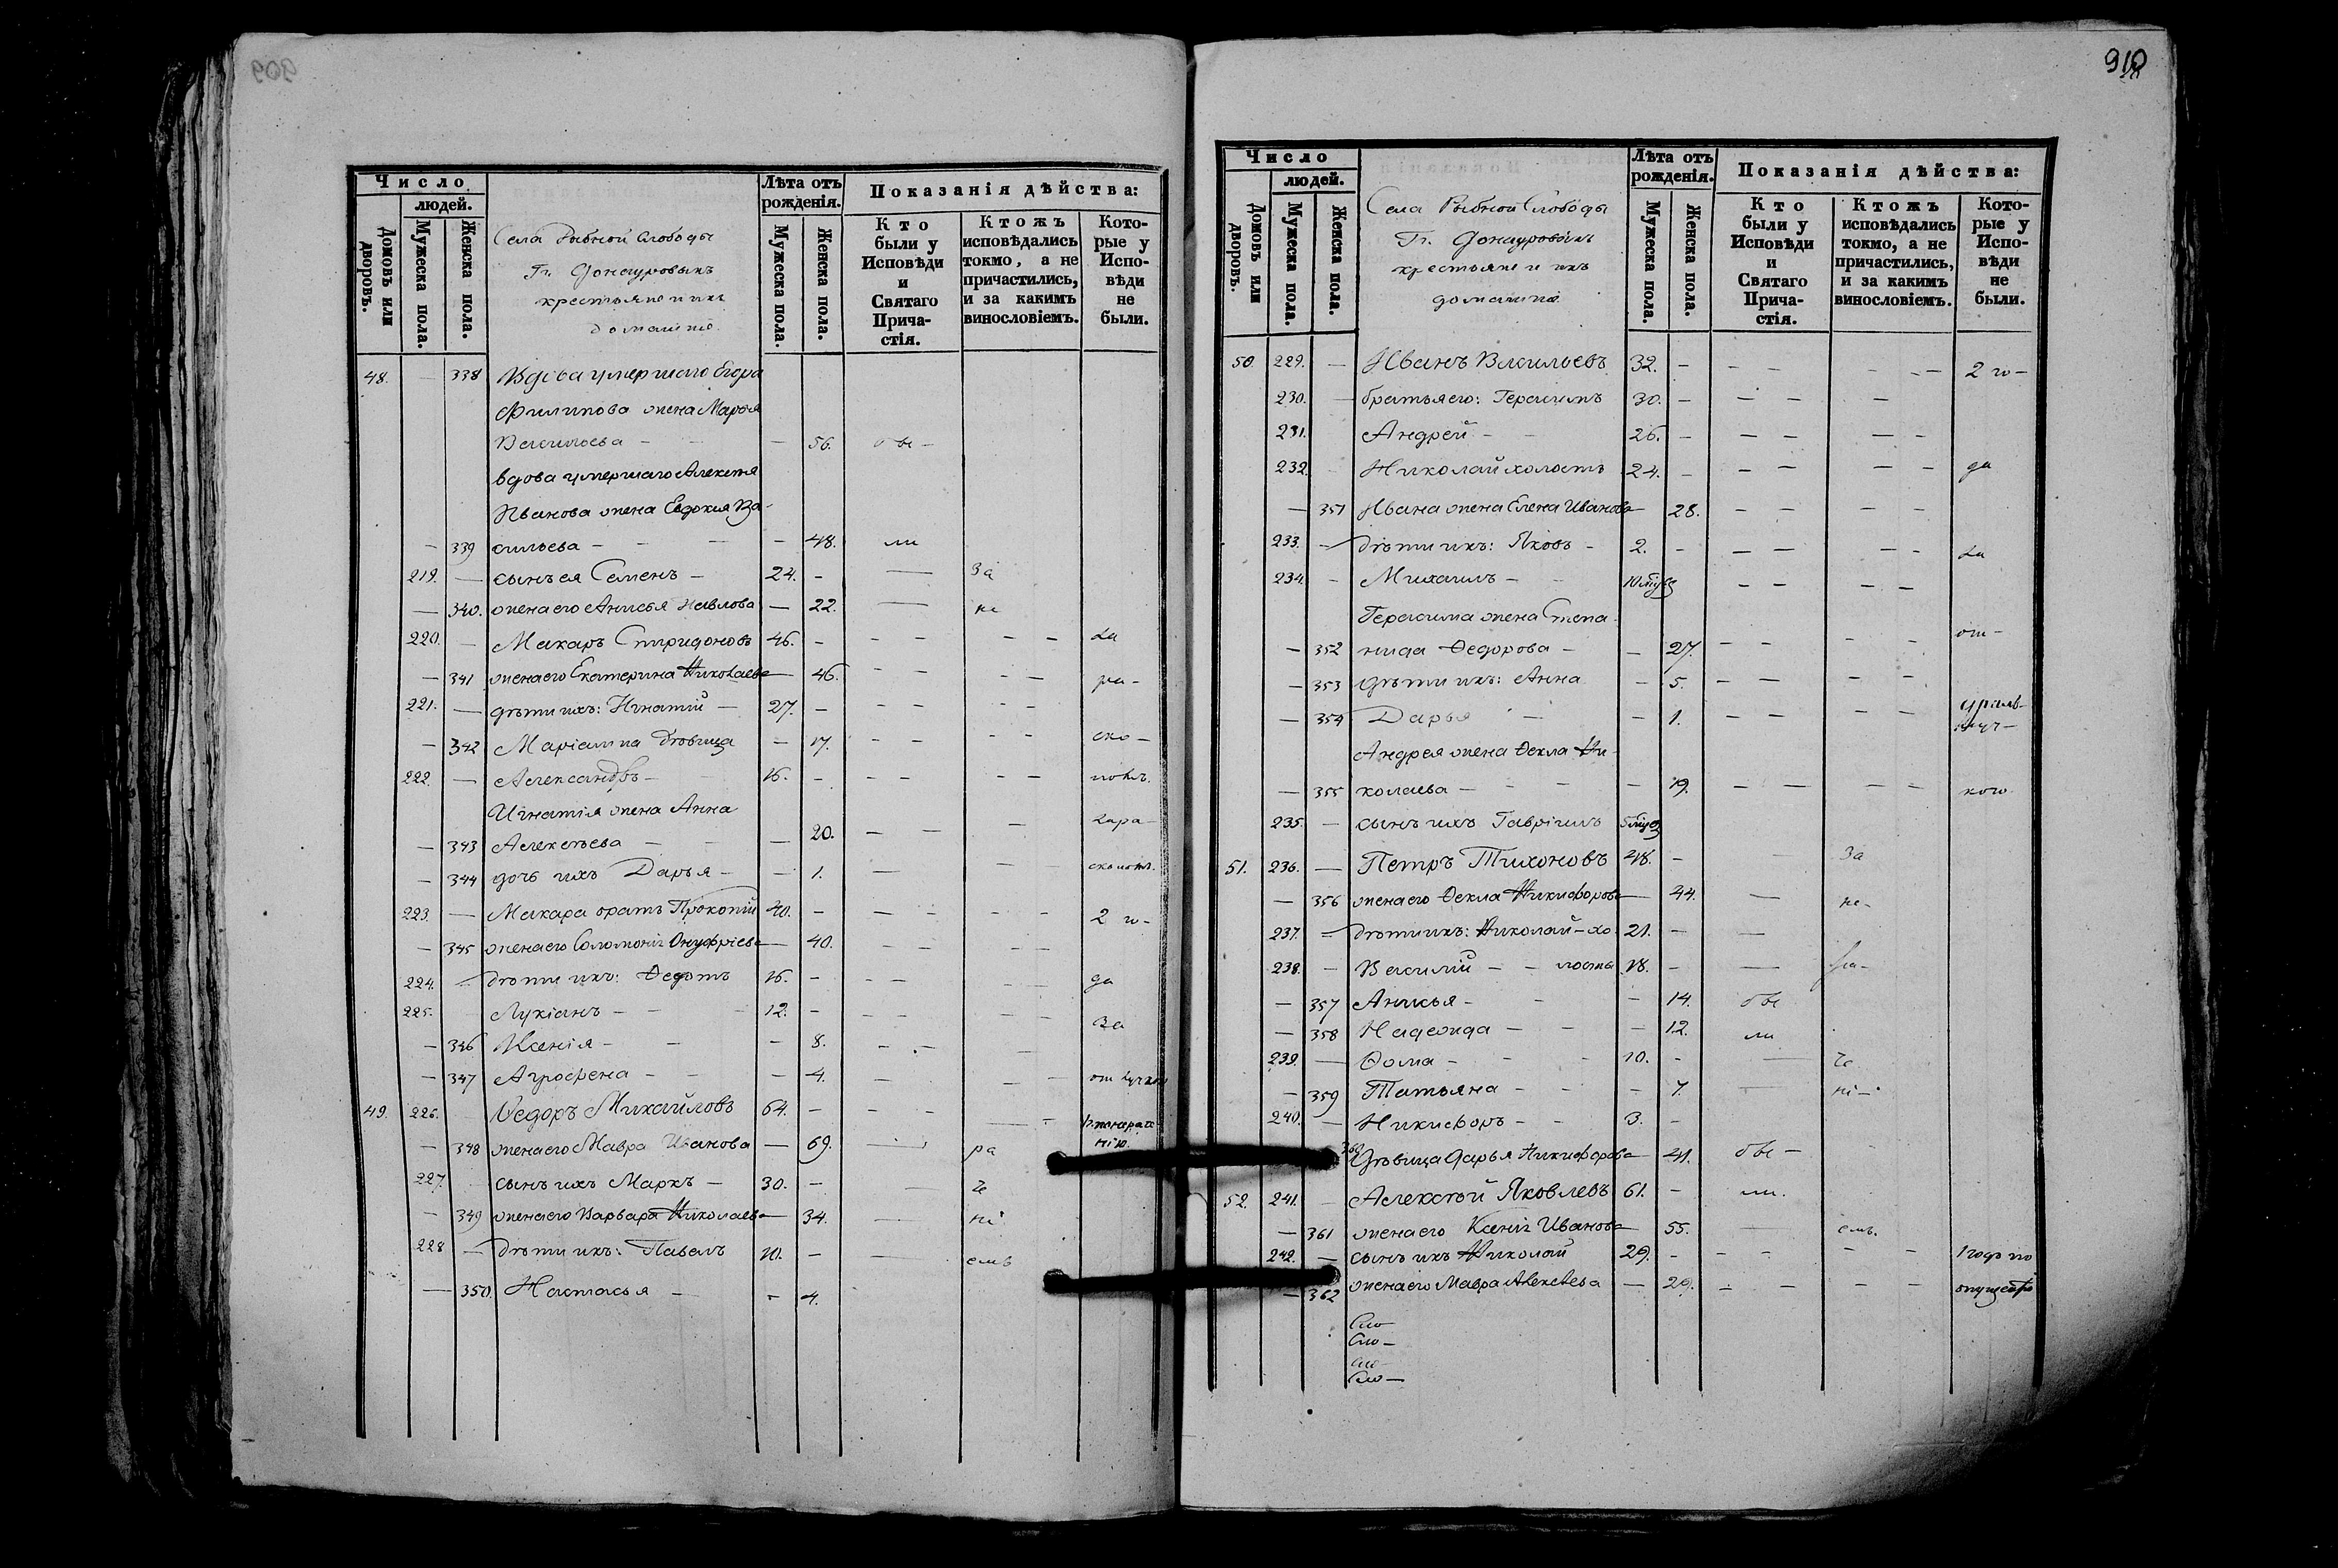 Число
людей.
Домовъ или дворовъ.
Мужеска пола.
Женска пола.
Села Рыбной Слободы
Гг. Донауровыхъ
крестьяне и ихъ
домашніе.
Лѣта отъ рожденія.
Мужеска пола.
Женска пола.
Показанія дѣйства:
Кто были у Исповѣди и Святаго Причастія.
Ктожъ исповѣдались токмо, а не причастились, и за какимъ винословіемъ.
Которые у Исповѣди не были.
48. — 338 Вдова умершаго Егора
Филипова жена Марѳа
Васильева — — 56. бы —
вдова умершаго Алексѣя
Иванова жена Евдокия Ва-
— 339 сильева — — 48. ли
219. — сынъ ея Семенъ — 24. — за
— 340. жена его Анисья Павлова — 22. не
220. — Макаръ Спиридоновъ 46. —
— 341 жена его Екатерина Николаева — 46.
221. — дѣти ихъ: Игнатий — 27. —
— 342 Маріамна дѣвица — 17.
222. — Александръ — 16. —
Игнатія жена Анна
— 343 Алексѣева — — 20.
— 344 дочь ихъ Дарья — — 1.
223. — Макара братъ Прокопий 40. — 2 го-
— 345 жена его Соломонія Онуфріева — 40.
224. — дѣти ихъ: Федотъ 16. — да
225. Лукіанъ — 12. — за
— 346 Ксенія — — 8.
— 347 Агрофена — — 4.
49. 226. Ѳедоръ Михайловъ 64. —
— 348 жена его Мавра Иванова — 69. ра
227. сынъ ихъ Маркъ — 30. — че
— 349 жена его Варвара Николаева — 34. ні
228 — дѣти ихъ: Павелъ 10. — емъ
— 350. Настасья — — 4.
910
Число
людей.
Домовъ или дворовъ.
Мужеска пола.
Женска пола.
Села Рыбной Слободы
Гг. Донауровыхъ
крестьяне и ихъ
домашніе.
Лѣта отъ рожденія.
Мужеска пола.
Женска пола.
Показанія дѣйства:
Кто были у Исповѣди и Святаго Причастія.
Ктожъ исповѣдались токмо, а не причастились, и за какимъ винословіемъ.
Которые у Исповѣди не были.
50 229. — Иванъ Васильевъ 32. — 2 го —
230. — братья его: Герасимъ 30. —
231. Андрей — 26. —
232. Николай холостъ 24. — да
— 351 Ивана жена Елена Иванова — 28.
233. — дѣти ихъ: Яковъ — 2. — за
234. — Михаилъ —
Герасима жена Степа-
— 352 нида Федорова — — 27. от —
— 353 дѣти ихъ: Анна — 5.
— 354 Дарья — — 1.
Андрея жена Фекла Ни-
— 355 колаева — — 19.
235. — сынъ ихъ Гавріилъ
51. 236. — Петръ Тихоновъ 48. — за
— 356 жена его Фекла Никифорова — 44. не-
237. — дѣти ихъ: Николай — хо- 21. —
238. — Василий — — лосты 18. —
— 357 Анисья — — 14. бы
— 358 Надежда — — 12. ли
239. — Ѳома — 10. — че
— 359 Татьяна — — 7. ні-
240. — Никифоръ — 3. —
360 Дѣвица Дарья Никифорова — 41. бы —
52. 241. — Алексѣй Яковлевъ 61. — ли.
— 361 жена его Ксенія Иванова — 55. емъ.
242. — сынъ ихъ Николай 29. — 1 годъ по
— 362 жена его Мавра Алексѣева — 29.